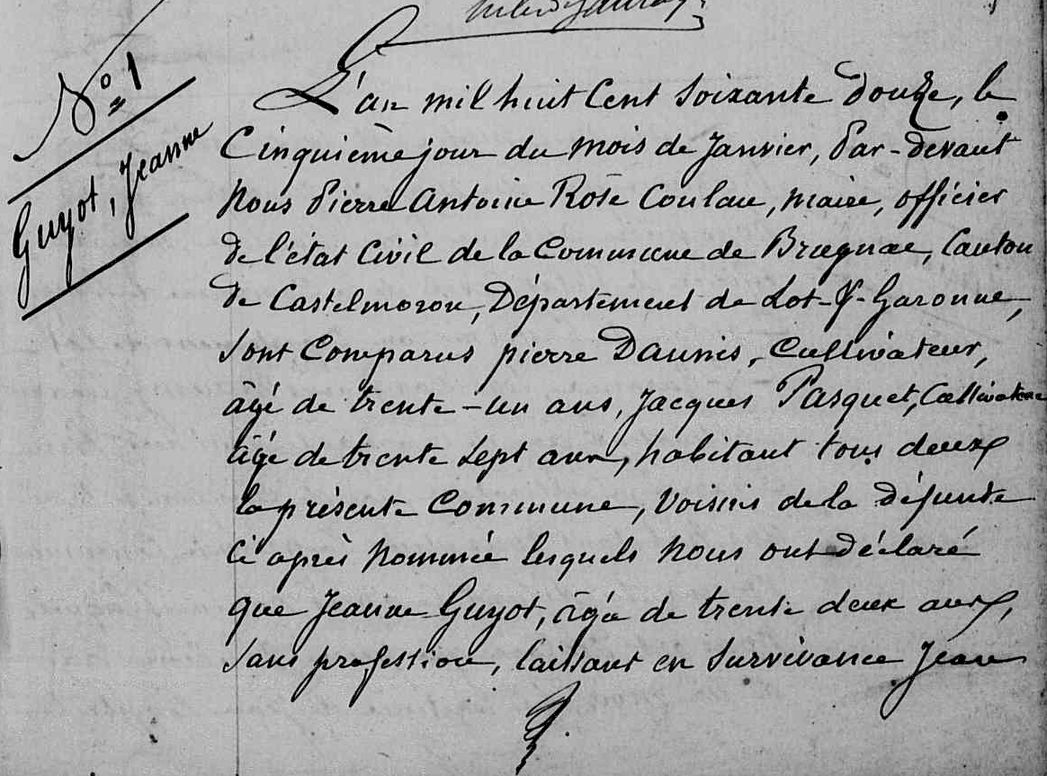 N° 1
Guyot, Jeanne
L'an mil huit Cent soixante douze, le
Cinquième jour du mois de Janvier, Par-devant
Nous Pierre Antoine Rose Coulau, maire, officier
de l'état Civil de la Commune de Brugnac, Canton
de Castelmoron, Département de Lot-&-Garonne,
sont Comparus pierre Daunis, Cultivateur,
âgé de trente-un ans, Jacques Pasquet, Cultivateur
âgé de trente sept ans, habitant tous deux
la présente Commune, Voisins de la défunte
Ci après Nommée lesquels Nous ont déclaré
que Jeanne Guyot, âgée de trente deux ans,
sans profession, laissant en survivance Jean